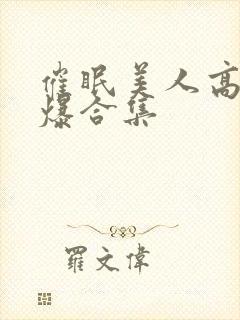 催眠美人高
爆合集
羅文偉